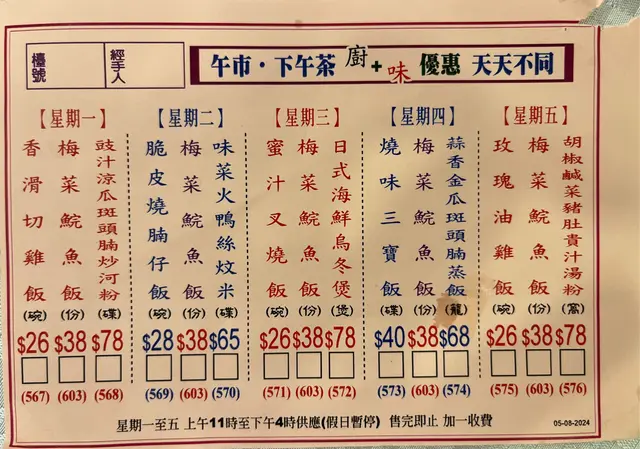 檯號
經手人
午市·下午茶 廚+味 優惠 天天不同
【星期一】
香滑切雞飯(碗)
$26
(567)
梅菜鯇魚飯(份)
$38
(603)
豉汁涼瓜斑頭腩炒河粉(碟)
$78
(568)
【星期二】
脆皮燒腩仔飯(碗)
$28
(569)
梅菜鯇魚飯(份)
$38
(603)
味菜火鴨絲炆米(碟)
$65
(570)
【星期三】
蜜汁叉燒飯(碗)
$26
(571)
梅菜鯇魚飯(份)
$38
(603)
日式海鮮烏冬煲(煲)
$78
(572)
【星期四】
燒味三寶飯(碟)
$40
(573)
梅菜鯇魚飯(份)
$38
(603)
蒜香金瓜斑頭腩蒸飯(籠)
$68
(574)
【星期五】
玫瑰油雞飯(碗)
$26
(575)
梅菜鯇魚飯(份)
$38
(603)
胡椒鹹菜豬肚貴汁湯粉(窩)
$78
(576)
星期一至五 上午11時至下午4時供應(假日暫停) 售完即止 加一收費
05-08-2024